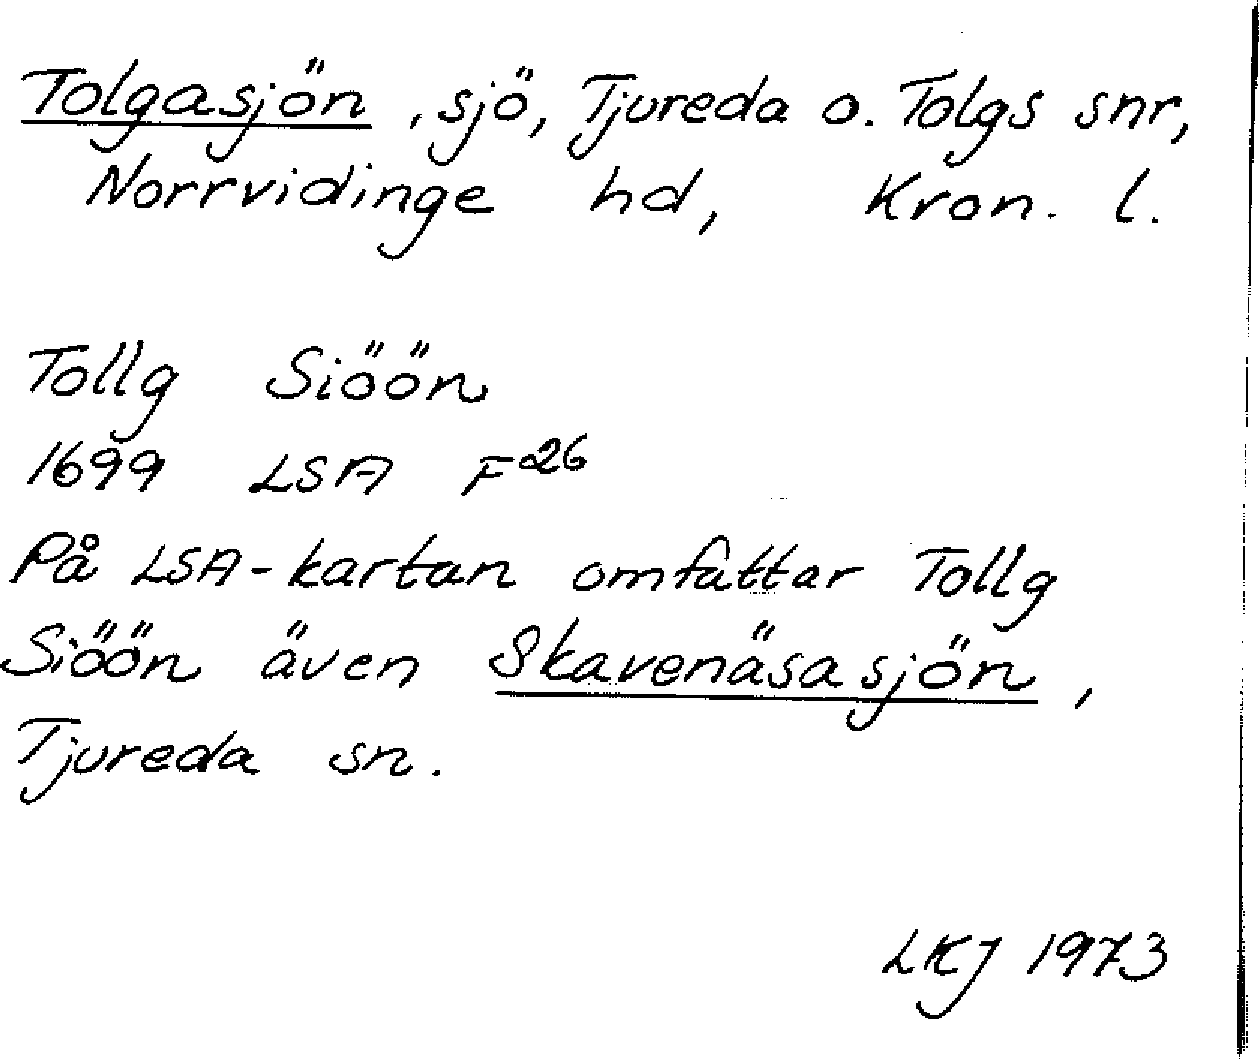 Tolgasjön, sjö, Tjureda o. Tolgs snr,
Norrvidinge hd, Kron. l.
Tollg Siöön
1699 LSA F26
På LSA-kartan omfattar Tollg
Siöön även Skavenäsasjön,
Tjureda sn.
LKJ 1973